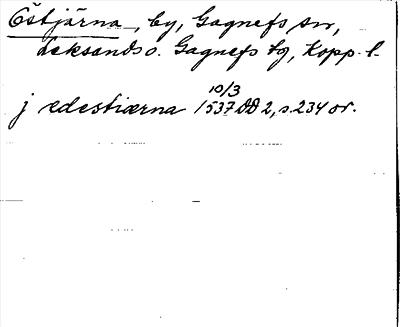 Östjärna, by, Gagnefs sn,
Leksands o. Gagnefs tg, Kopp. l.
10/3
j edestiærna 1537 DD 2, s. 234 or.